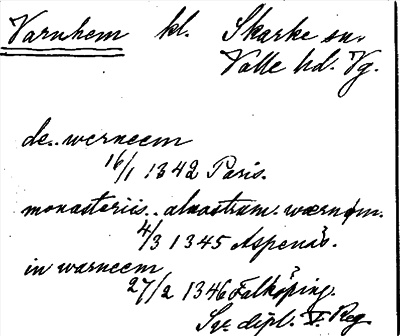 Varnhem kl. Skarke sn.
Valle hd. Vg.
de .. werneem
16/1 1342 Paris.
monasteriis .. alwastrum. wærnem.
4/3 1345 Aspenäs.
in warneem
27/2 1346 Falköping.
Sv. dipl. V Reg